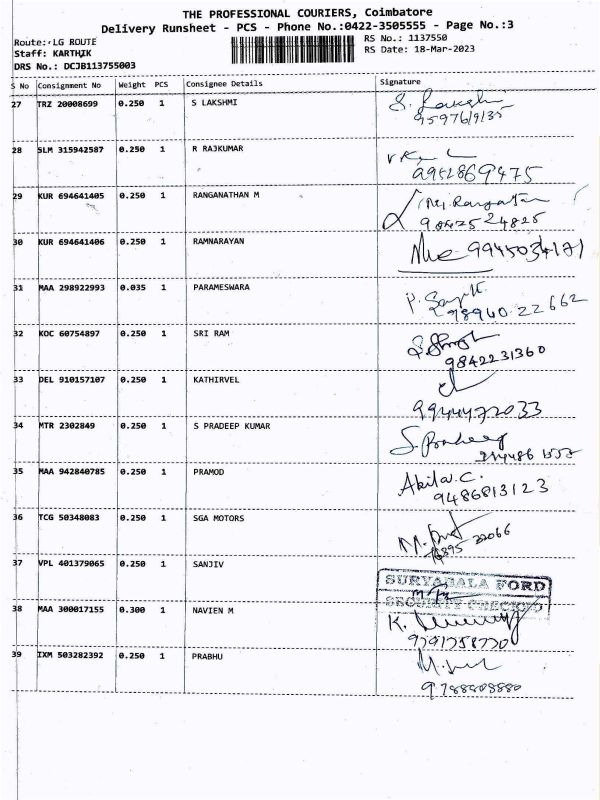 THE PROFESSIONAL COURIERS, Coimbatore
Delivery Runsheet - PCS - Phone No.:0422-3505555 - Page No.:3
Route: LG ROUTE
RS No.: 1137550
Staff: KARTHIK
RS Date: 18-Mar-2023
DRS No.: DCJB113755003
S No Consignment No Weight PCS Consignee Details Signature
27 TRZ 20008699 0.250 1 S LAKSHMI S. Lakshmi
28 SLM 315942587 0.250 1 R RAJKUMAR
9952869475
29 KUR 694641405 0.250 1 RANGANATHAN M
9842524825
30 KUR 694641406 0.250 1 RAMNARAYAN 9945034171
31 MAA 298922993 0.035 1 PARAMESWARA
98940 22662
32 KOC 60754897 0.250 1 SRI RAM
9842231360
33 DEL 910157107 0.250 1 KATHIRVEL
9944472033
34 MTR 2302849 0.250 1 S PRADEEP KUMAR
35 MAA 942840785 0.250 1 PRAMOD Akila.C.
9486813123
36 TCG 50348083 0.250 1 SGA MOTORS
37 VPL 401379065 0.250 1 SANJIV
SURYABALA FORD
SECURITY CHECKED
38 MAA 300017155 0.300 1 NAVIEN M
9791758770
39 IXM 503282392 0.250 1 PRABHU
9788808880